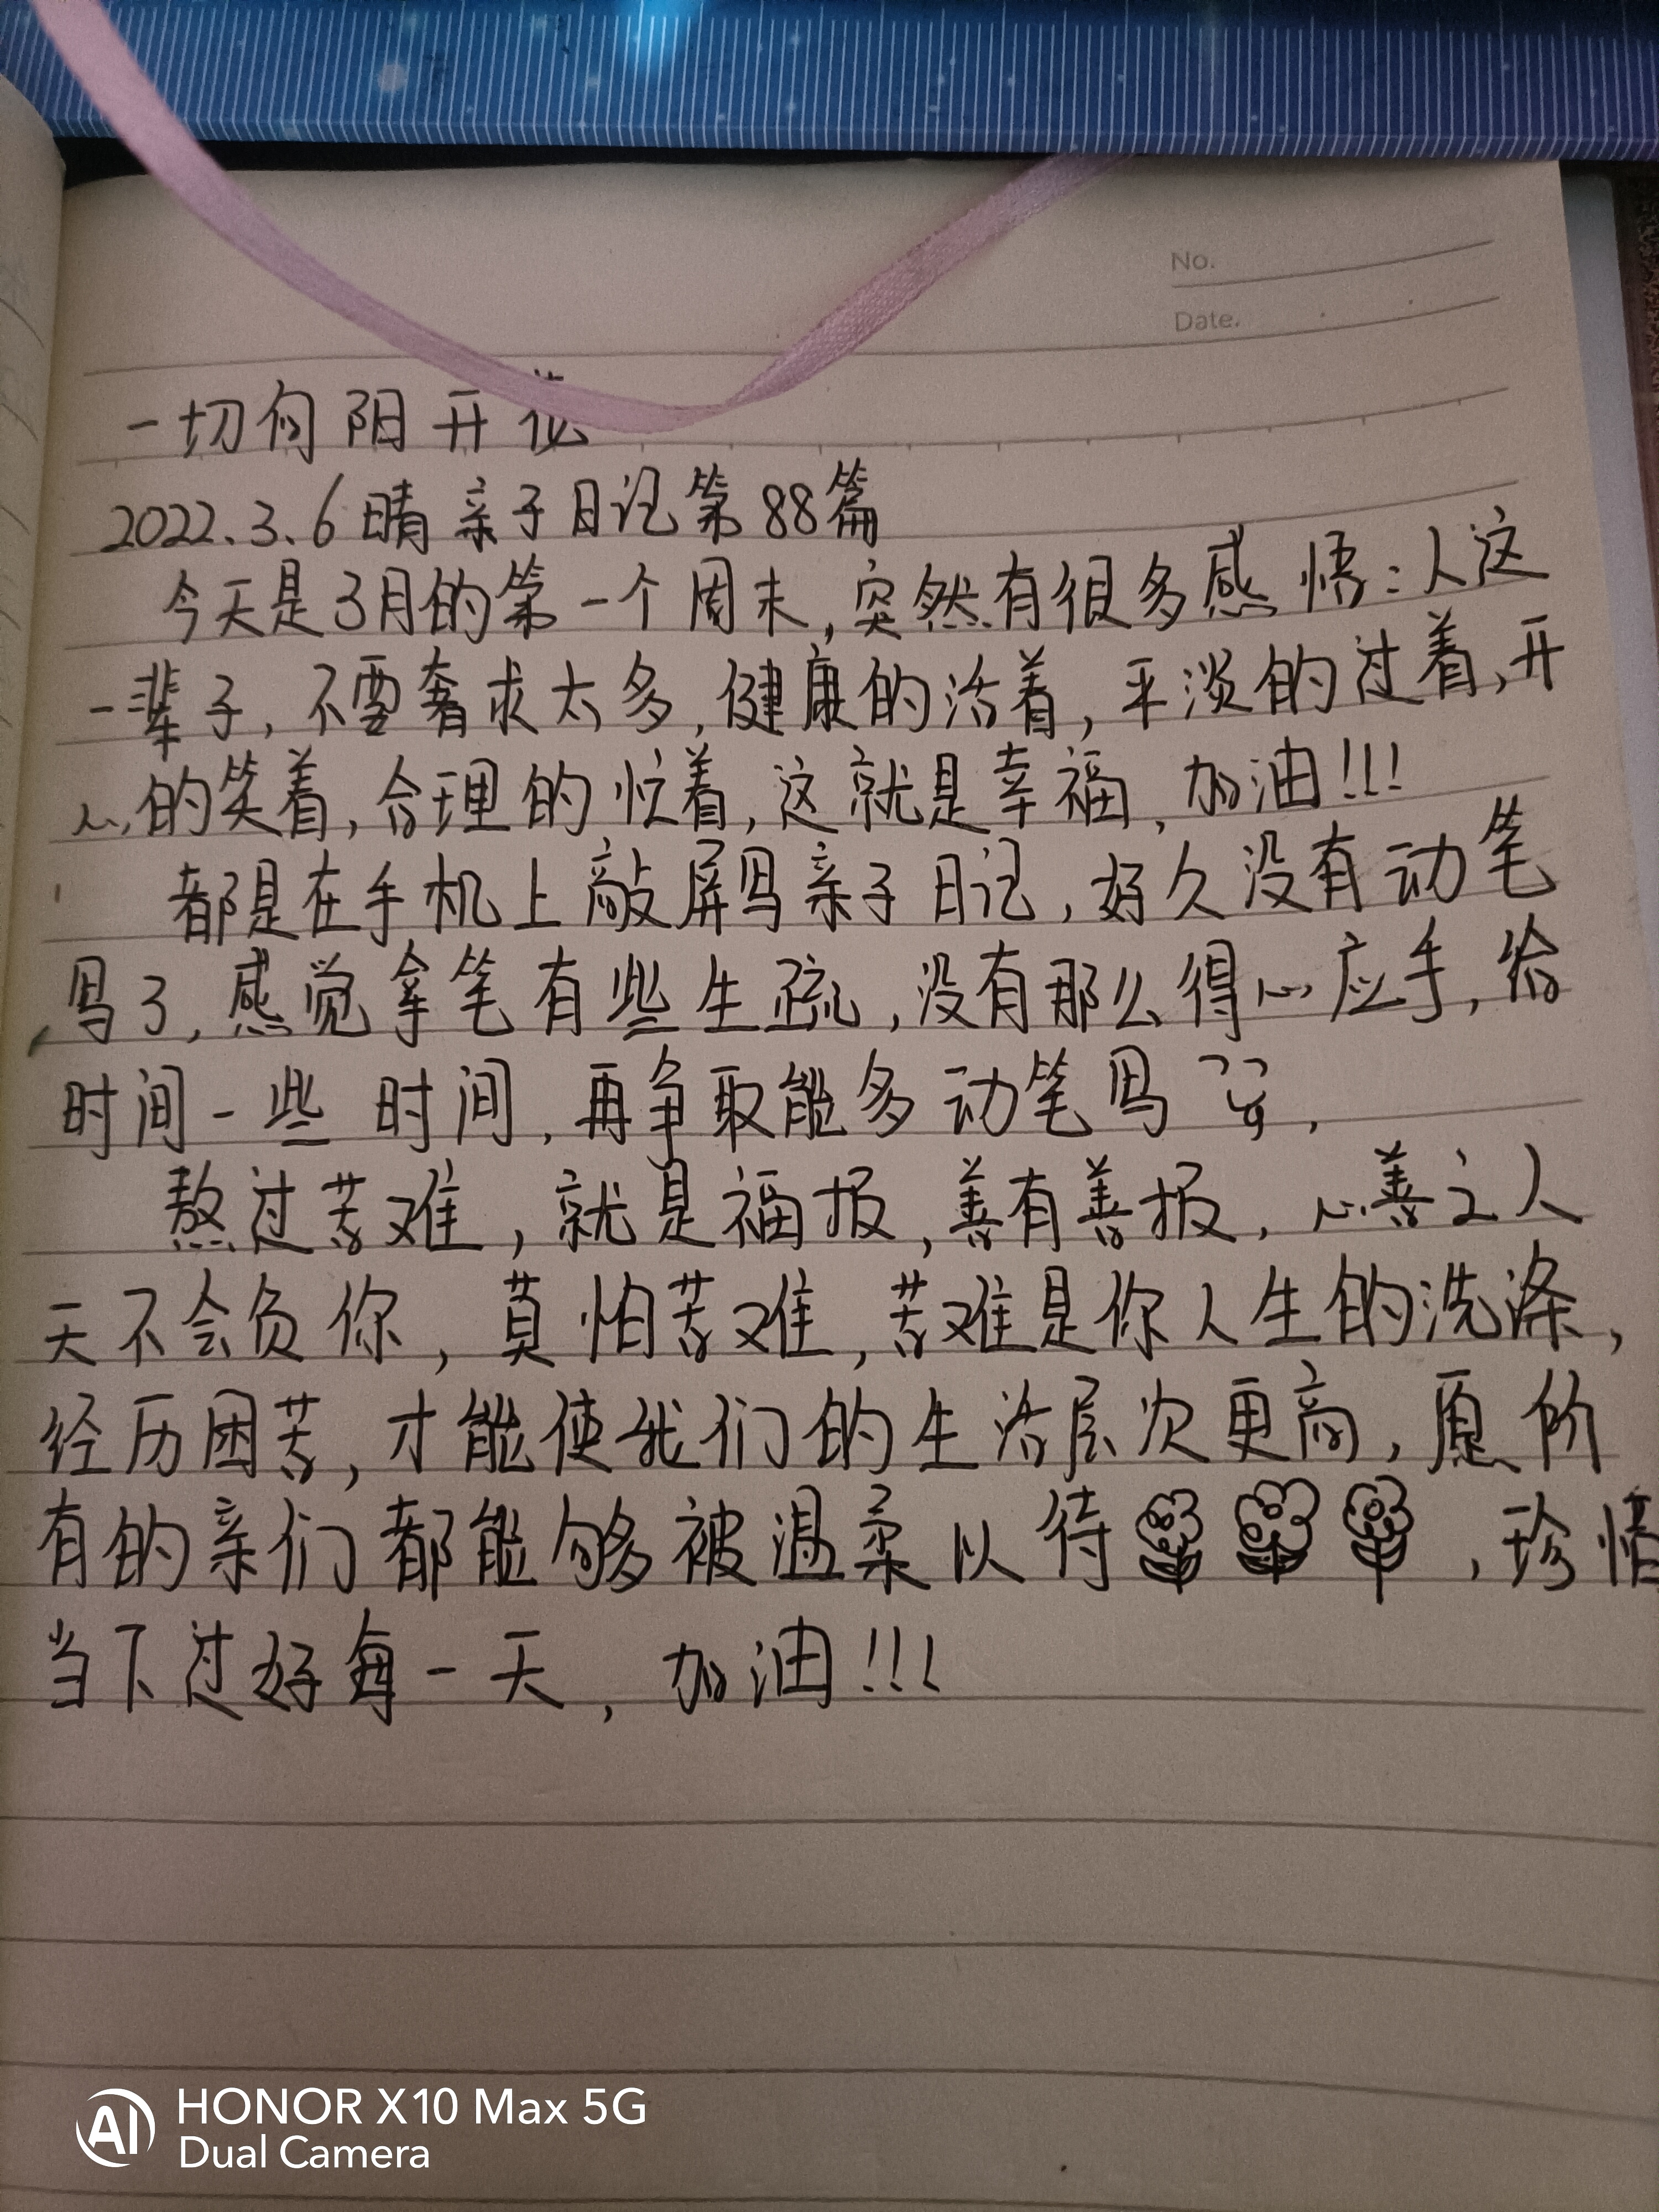 No.
Date.
一切向阳开花
2022.3.6 晴 亲子日记第88篇
今天是3月的第一个周末,突然有很多感悟:人这
一辈子,不要奢求太多,健康的活着,平淡的过着,开
心的笑着,合理的忙着,这就是幸福,加油!!!
都是在手机上敲屏写亲子日记,好久没有动笔
写了,感觉拿笔有些生疏,没有那么得心应手,给
时间一些时间,再争取能多动笔写
熬过苦难,就是福报,善有善报,心善之人
天不会负你,莫怕苦难,苦难是你人生的洗涤,
经历困苦,才能使我们的生活层次更高,愿所
有的亲们都能够被温柔以待,珍惜
当下过好每一天,加油!!!
AI HONOR X10 Max 5G
Dual Camera